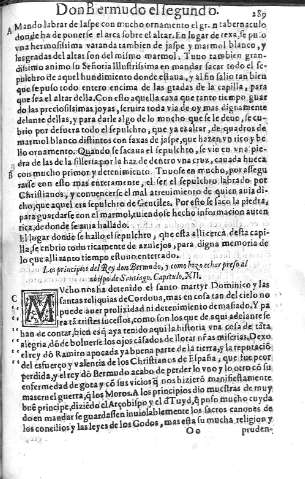 Don Bermudo el segundo. 289
A Mando labrar de iaspe con mucho ornamento el gran tabernaculo
donde ha de ponerse el arca sobre el altar. En lugar de rexa, se puso
vna hermosissima varanda tambien de jaspe y marmol blanco, y
las gradas del altar son del mismo marmol. Tuuo tambien gran-
dissimo animo la Señora Illustrissima en mandar sacar todo el se-
pulchro de aquel hundimiento donde estaua, y al fin salio tan bien
que se puso todo entero encima de las gradas de la capilla, para
que sea el altar della. Con esto aquella caxa que tanto tiempo guar-
do las preciosissimas joyas, seruira toda via de oy mas dignamente
delante dellas, y para darle algo de lo mucho que se le deue, se cu-
brio por defuera todo el sepulchro, que ya es altar, de quadros de
marmol blanco distintos con faxas de jaspe, que hazen vn rico y be-
llo ornamento. Quando se sacaua el sepulchro, se vio en vna pie-
dra de las de la silleria por la haz de dentro vna cruz, cauada hueca
B con mucho primor y detenimiento. Tuuose en mucho, por assegu-
rarse con ello mas enteramente, el ser el sepulchro labrado por
Christianos, y conuencerse el mal atreuimiento de quien auia di-
cho, que aquel era sepulchro de Gentiles. Por esto se saco la piedra,
para guardarse con el marmol, tuuiendose hecho informacion auten
tica, de donde se auia hallado.
El lugar donde se hallo el sepulchro, que esta alli cerca desta capi-
lla, se cubrio todo ricamente de azulejos, para digna memoria de
lo que alli tanto tiempo estuuo enterrado.
Los principios del Rey don Bermudo, y como hizo echar preso al
obispo de Santiago. Capitulo. XII.
MVcho nos ha detenido el santo martyr Dominico y las
santas reliquias de Cordoua, mas en cosa tan del cielo no
puede auer prolixidad ni detenimiento demasiado. Y pa
ra tã tristes successos, como son los que de aqui adelante se
han de contar, bien es q̃ aya tenido aqui la historia vna cosa de tãta
alegria, dõ de boluerse los ojos cãsados de llorar nr̃as miserias. Dexo
el rey dõ Ramiro apocada ya buena parte de la tierra, y la reputaciõ
del esfuerço y valencia de los Christianos de España, que fue peor
perdida, y el rey dõ Bermudo acabo de perder lo vno y lo otro cõ su
enfermedad de gota y cõ sus vicios q̃ nos hizierõ manifiestamente
mas cruel guerra, q̃ los Moros. A los principios dio muestras de muy
buẽ principe, diziẽdo el Arçobispo y el d̃ Tuyd, q̃ puso mucho cuyda
do en mandar se guardassen inuiolablemente los sacros canones de
los concilios y las leyes de los Godos, mas esta su mucha religion y
Oo pruden-